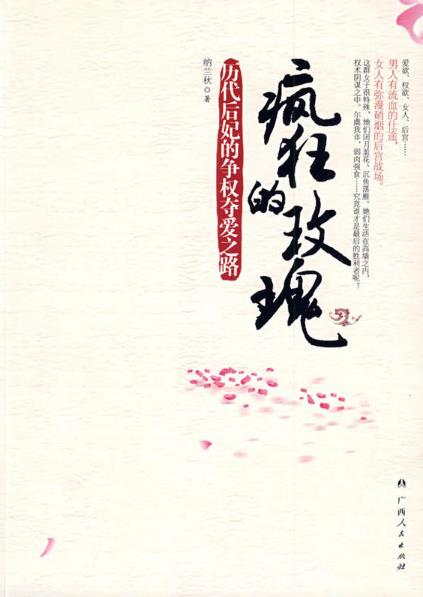 爱欲、权欲、女人、后宫……
男人有流血的仕途,
女人有弥漫硝烟的后宫战场。
这群女子很特殊,她们闭月羞花、沉鱼落雁。她们生活在高墙之内,
权术阴谋之中。尔虞我诈,弱肉强食……究竟谁才是最后的胜利者呢?
疯狂的玫瑰
历代后妃的争权夺爱之路
纳兰秋 著
广西人民出版社